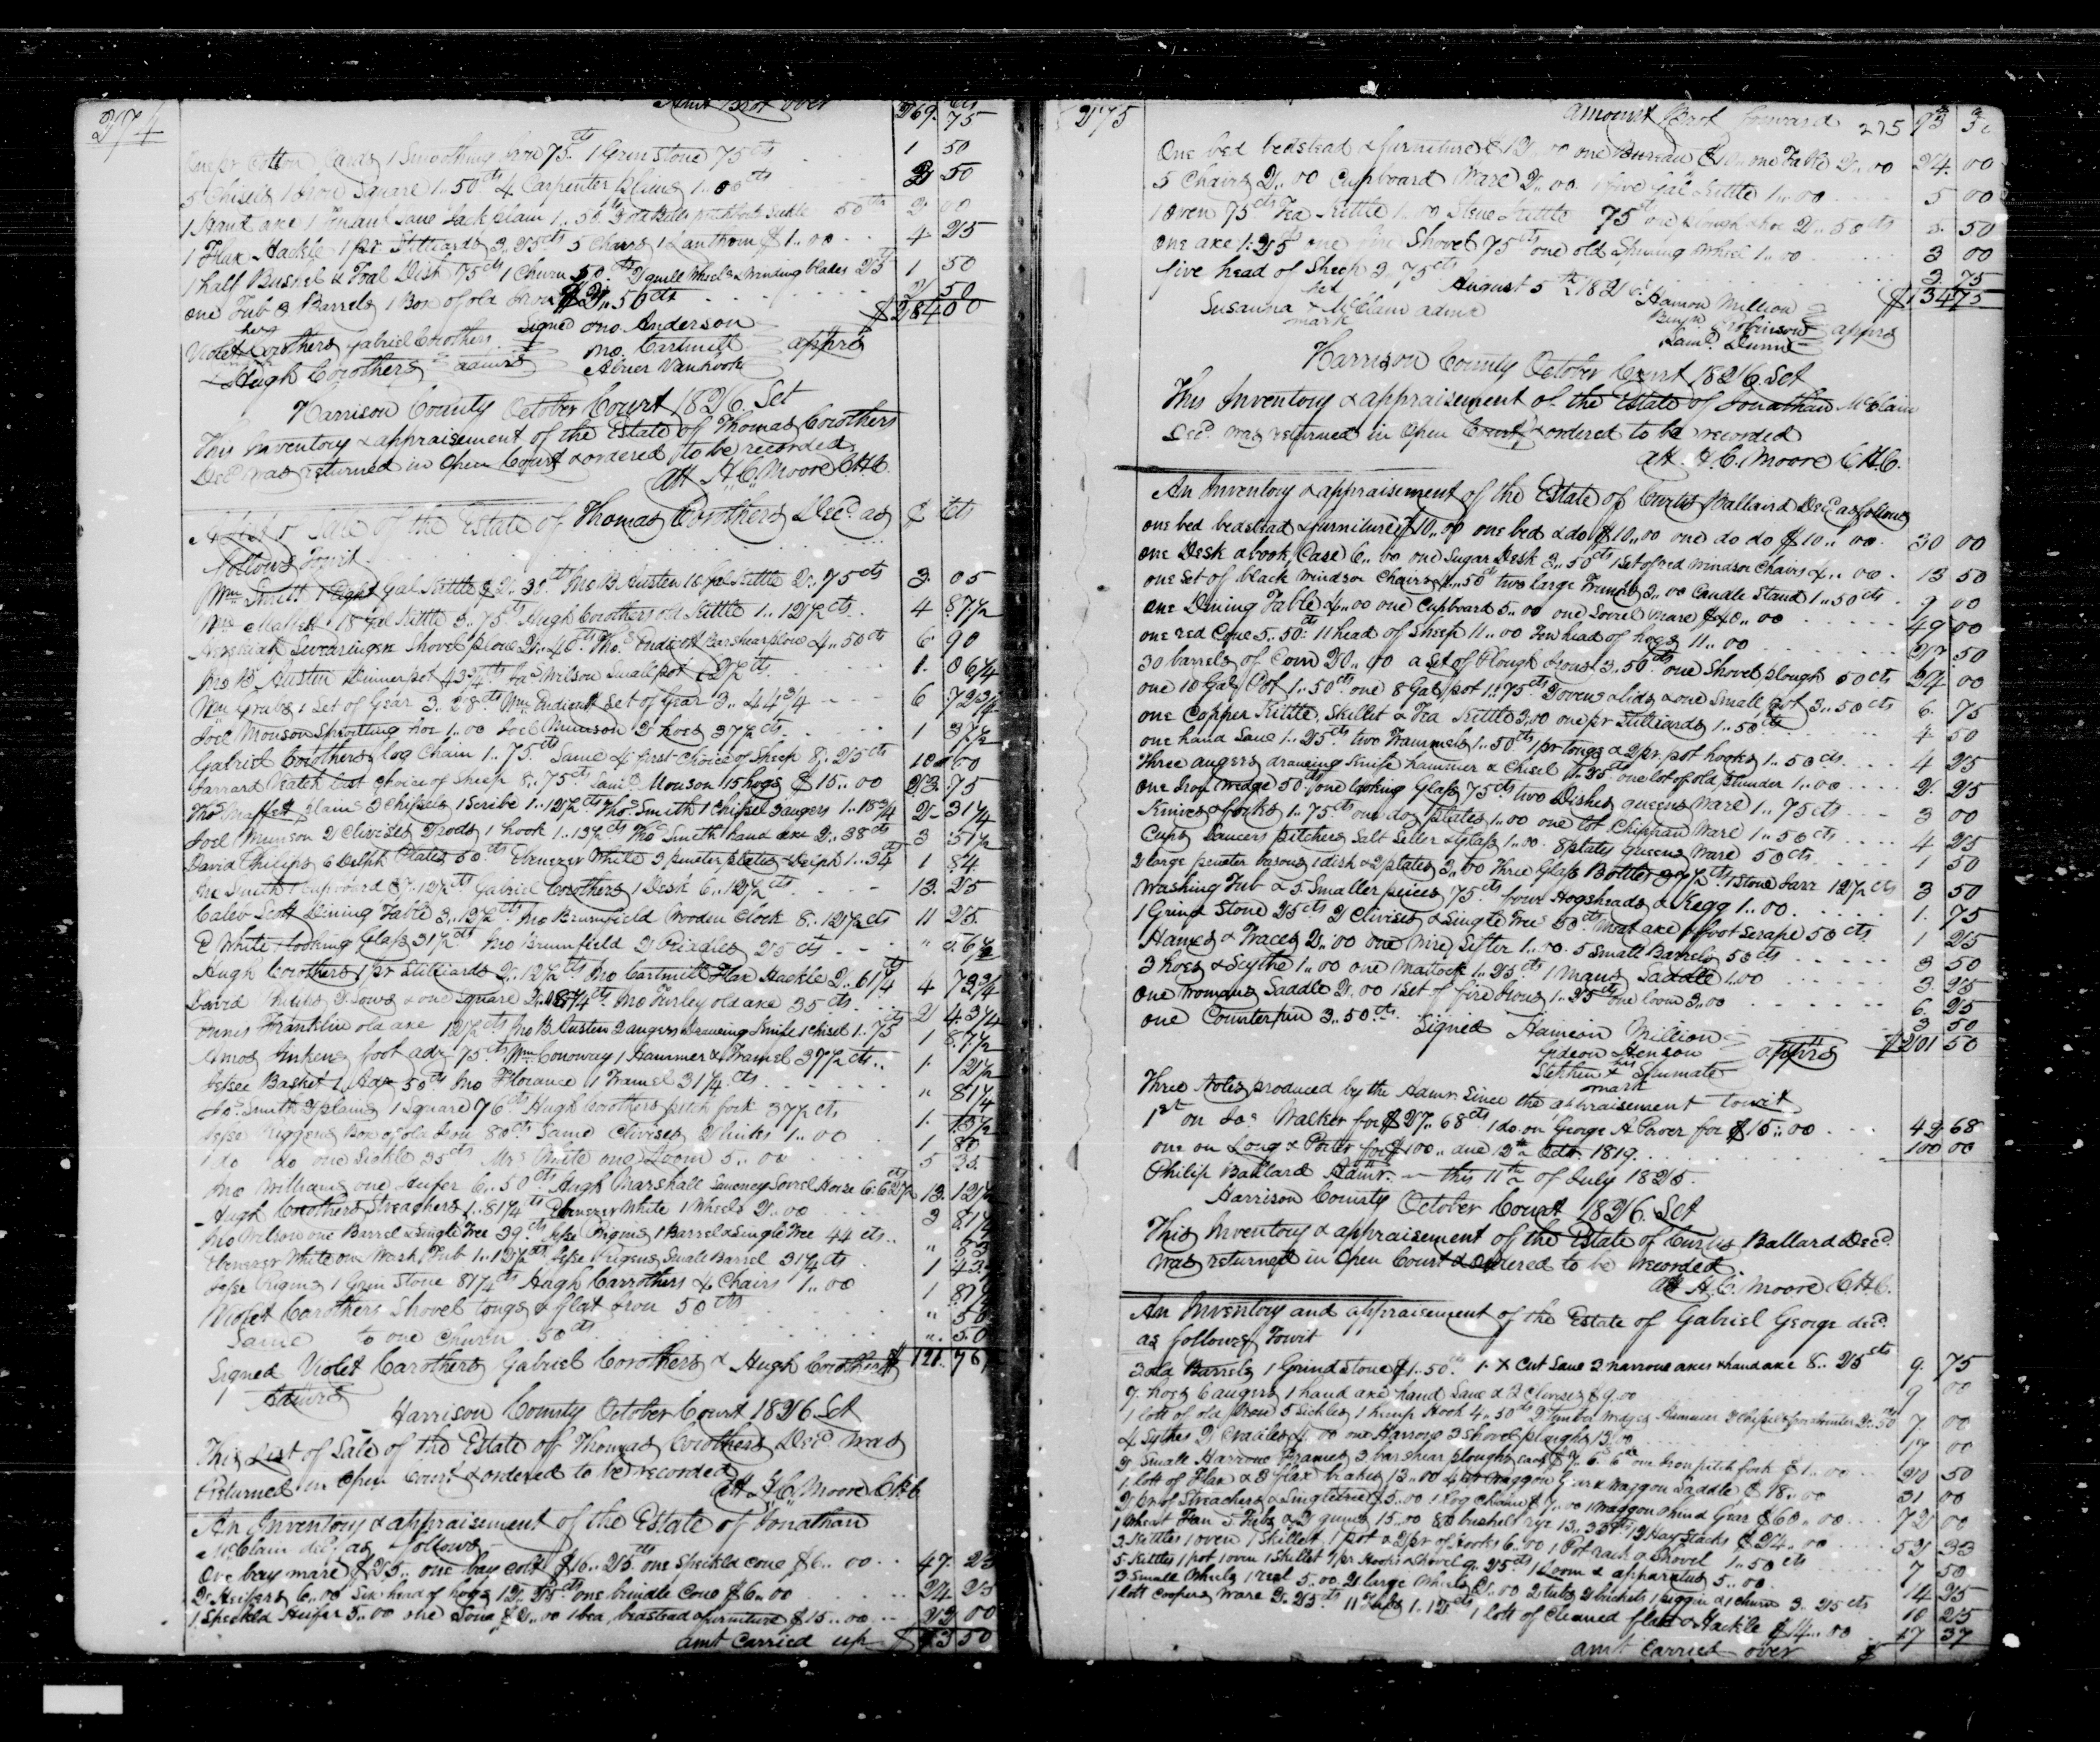 274
Amt Brot over 269. 75
One pr Cotton Cards 1 Smoothing Iron 75 cts 1 Grin Stone 75 cts 1 50
5 Chisels 1 Iron Square 1..50 cts 4 Carpenter 1..00 cts 2 50
1 Hand axe 1 Tenant Saw Jack plain 1..50 cts 50 cts 2 00
1 Flax Hackle 1 pr Stilliards 3..25 cts 5 Chairs 1 Lanthorn $1..00 4 25
1 half Bushel & Dish 75 cts 1 Churn 50 cts 2 quill Wheels & Winding blades 25 1 50
one Tub 3 Barrels 1 Box of old Iron $2..50 cts 2 50
$284 00
Violet Corothers Gabriel Corothers Signed Jno Anderson
her mark Jno Cartmill appr's
Hugh Corothers admrs Abner Vanhook
Harrison County October Court 1826. Sct
This Inventory & appraisement of the Estate of Thomas Corothers
Decd was returned in Open Court & ordered to be recorded
att H. C. Moore C.H.C.
A list of Sale of the Estate of Thomas Corothers Decd as $ Cts
follows Towit
Wm Smith 1 Eight Gal Kettle $2..30 cts Jno B. Austen 16 Gal Kettle 2..75 cts 3. 05
Mallett 18 Gal Kettle 3..75 cts Hugh Corothers old Kettle 1..12½ cts. 4 87½
Swearingen Shovel plow 2..40 cts Thos Endicott Barshear plow 4..50 ct 6. 90
Jno B. Austen Dinner pot 43¾ cts Jas Wilson Small pot 62½ cts 1. 06¼
Wm Grubs 1 Set of Gear 3..28 cts Wm Endicott Set of Gear 3..44¾ 6 72¾
Joel Monson Sprouting hoe 1..00 Joel Munson 2 hoes 37½ cts 1 37½
Gabriel Corothers log Chain 1..75 cts Same 4 first Choice of Sheep 8..25 cts 10 00
Jarrard Veatch last Choice of Sheep 8..75 cts Saml Monson 15 hogs $15..00 23. 75
Thos Maffett plains 3 Chissels 1 Scribe 1..12½ cts Thos Smith 1 Chissel 3 augers 1..18¾ 2 31¼
Joel Munson 2 Clivises 2 rods 1 hook 1..13½ cts Thos Smith 1 hand axe 2..38 cts 3 51½
David Philips 6 Delph Plates 50 cts Ebenezer White 3 pewter plates & Delph 1..34 1 84
Smith 1 Cupboard $7..12½ cts Gabriel Corothers 1 Desk 6..12½ cts 13. 25
Caleb Scott Dining Table 3..12½ cts Jno Brumfield Wooden Clock 8..12½ cts 11 25.
E White 1 looking Glass 31½ cts Jno Brumfield 2 Riddles 25 cts " 56½
Hugh Corothers 1 pr Stilliards 2..12½ cts Jno Cartmill Flax Hackle 2..61¼ 4 73¾
David Philips 2 Saws & one Square 2..08¾ cts Jno Furley old axe 35 cts 2 43¾
Franklin old axe 12½ cts Jno B. Austen 2 augers Drawing Knife 1 Chisel 1..75 1 87½
Amos foot adz 75 cts Wm Conoway 1 Hammer & Tramel 37½ cts 1. 12½
Basket 1 Adze 50 cts Jno Florance 1 Tramel 31¼ cts " 81¼
Jas Smith 3 plains 1 Square 76 cts Hugh Corothers pitch fork 37½ cts 1. 13½
Jesse Riggens Box of old Iron 80 cts Same Clivises 2 links 1..00 1 80
1 do do one Sickle 35 cts Mrs White one Loom 5..00 5 35.
Jno Williams one Heifer 6..50 cts Hugh Marshall Sorrel Horse 6..62½ 13. 12½
Hugh Corothers Streachers 1..81¼ cts Ebenezer White 1 Wheel 2..00 3 81¼
Jno Wilson one Barrel & Single Tree 39 cts Jesse Rigins 1 Barrel & Single Tree 44 cts " 83
Ebenezer White one Wash Tub 1..12½ cts Jesse Rigens Small Barrel 31¼ cts 1 43¾
Jesse Rigins 1 Grin Stone 81¼ cts Hugh Carrothers 4 Chairs 1..00 1 81¼
Violet Carothers Shovel tongs & flat Iron 50 cts " 50
Same to one Churn 50 cts " 50
Signed Violet Carothers Gabriel Corothers & Hugh Corothers $ 121..76
Admrs
Harrison County October Court 1826. Sct
This List of Sale of the Estate of Thomas Corothers Decd was
Returned in Open Court & ordered to be recorded
att H. C. Moore C.H.C.
An Inventory & appraisement of the Estate of Jonathan
McClain decd as follows
One bay mare $25.. one bay colt $16..25 cts one Speckld cow $6..00 47. 25
2 Heifers 6..00 Six head of hogs 12..25 cts one brindle Cow $6..00 24 25
1 Speckld Heifer 5..00 one Sow $2..00 1 bed, beadstead & furniture $15..00 22 00
amt Carried up $ 93 50
275
Amount Brot forward 275 93 50
One bed bedstead & furniture $12..00 one Bureau $10.. one Table 2..00 24. 00
5 Chairs 2..00 Cupboard Ware 2..00. 1 five Gal Kettle 1..00 5 00
1 oven 75 cts Tea Kettle 1..00 Stew Kettle 75 cts one Plough & hoe 2..50 cts 5. 50
One axe 1..25 cts one fire Shovel 75 cts one old Spining Wheel 1..00 3 00
five head of Sheep 3..75 cts 3. 75
$134 75
August 5th 1826. Hamon Million
Susanna her x mark McClain admx Benjn Robinson appr's
Saml Dunn
Harrison County October Court 1826. Sct
This Inventory & appraisement of the Estate of Jonathan McClain
Decd was returned in Open Court & ordered to be recorded
att. H. C. Moore C.H.C.
An Inventory & appraisement of the Estate of Curtis Ballaird Decd as follows
one bed bedstead & furniture $10..00 one bed & do $10..00 one do do $10..00. 30 00
one Desk & book Case 6..00 one Sugar Desk 3..50 cts 1 Set of red Windsor Chairs 4..00 13 50
one set of black Windsor Chairs 4..50 cts two large Trunks 3..00 Candle Stand 1..50 cts 9 00
one Dining Table 4..00 one Cupboard 5..00 one Sorrel Mare $40..00 49 00
one red Cow 5..50 cts 11 head of Sheep 11..00 Ten head of hogs 11..00 27. 50
30 barrels of Corn 20..00 a Set of Plough Irons 3.50 cts one Shovel plough 50 cts. 24 00
one 10 Gal Pot 1..50 cts one 8 Gal pot 1..75 cts 2 ovens & lids & one Small pot 3..50 cts 6. 75
one Copper Kettle, Skillet & Tea Kettle 3.00 one pr Stilliards 1..50 cts 4 50
one hand Saw 1..25 cts two Trammels 1..50 cts 1 pr tongs & 2 pr. pot hooks 1..50 cts 4 25
Three augers drawing Knife hammer & Chisel 1..25 cts one lot of old plunder 1..00 2. 25
One Iron Wedge 50 cts one looking Glass 75 cts two Dishes queens Ware 1..75 cts 3 00
Knives & forks 1..75 cts one doz plates 1..00 one lot Chippan Ware 1..50 cts 4 25
Cups Saucers pitchers Salt Seller & glass 1..00. 8 plates queens Ware 50 cts 1 50
2 large pewter basons 1 dish & 2 plates 3..00 Three Glass Bottles 37½ cts 1 Stone Jarr 12½ cts 3 50
Washing Tub & 5 Smaller peices 75 cts four Hogsheads & Kegg 1..00 1. 75
1 Grind Stone 25 cts 2 Clivises & Single Tree 50 cts Meat axe & foot Scrape 50 cts 1 25
Hames & Traces 2..00 one Wire Sifter 1..00. 5 Small Barrels 50 cts 3 50
3 hoes & Scythe 1..00 one Mattock 1..25 cts 1 Mans Saddle 1..00 3. 25
One Womans Saddle 2..00 1 Set of fire Irons 1..25 cts one loom 3..00 6. 25
one Counterpun 3..50 cts. 3 50
Signed Hamson Million
Gideon Henson appr's $201 50
Stephen his x mark Shumate
Three Notes produced by the Admr. Since the appraisement towit
1st on Jas Walker for $27..68 cts 1 do. on George A Perver for $15..00 42 68
one on Long & Porter for $100.. due 13th Octr. 1819. 100 00
Philip Ballard Admr. this 11th of July 1825.
Harrison County October Court 1826. Sct
This Inventory & appraisement of the Estate of Curtis Ballard Decd.
was returned in Open Court & ordered to be recorded.
att H. C. Moore C.H.C.
An Inventory and appraisement of the Estate of Gabriel George decd.
as follows Towit
3 old Barrels 1 Grindstone $1..50 cts 1 X Cut Saw 3 narrow axes & hand axe 8..25 cts 9. 75
7 hoes 6 augers 1 hand axe hand Saw & 2 Clivises $9..00 9 00
1 lott of old Iron 5 Sickles 1 hemp Hook 4..50 cts 2 timber Wedges Hammer 2..50 7 00
4 Sythes 2 Cradles 4..00 one Harrow 3 Shovel ploughs 13..00 17 00
2 Small Harrow Frames 3 bar Shear ploughs one Iron pitch fork $1..00 20 50
1 lott of Flax & 2 flax brakes 13..00 Waggon Gear & Waggon Saddle $18..00 31 00
2 pr of Streachers & Singletrees $5..00 1 log Chain $7..00 1 Waggon & hind Gear $60..00 72 00
1 Wheat Fan 15..00 bushels rye 13..33 cts 12 Hay Stacks $24..00 52 33
3 Kettles 1 oven 1 Skillet 1 pot & 2 pr of Hooks 6..00 1 Pot rack & Shovel 1..50 cts 7 50
5 Kettles 1 pot 1 oven 1 Skillet 1 pr Hooks & Shovel 9..25 cts 1 Loom & apparatus 5..00 14 25
3 Small Wheels 1 reel 5..00 2 large Wheels 2..00 2 tubs 2 buckets 1 piggin & 1 churn 3..25 cts 10 25
1 lott Coopers Ware 2..25 cts 11 1..12 cts 1 lott of Cleaned flax & Hackle $14..00 17 37
amt Carried over $